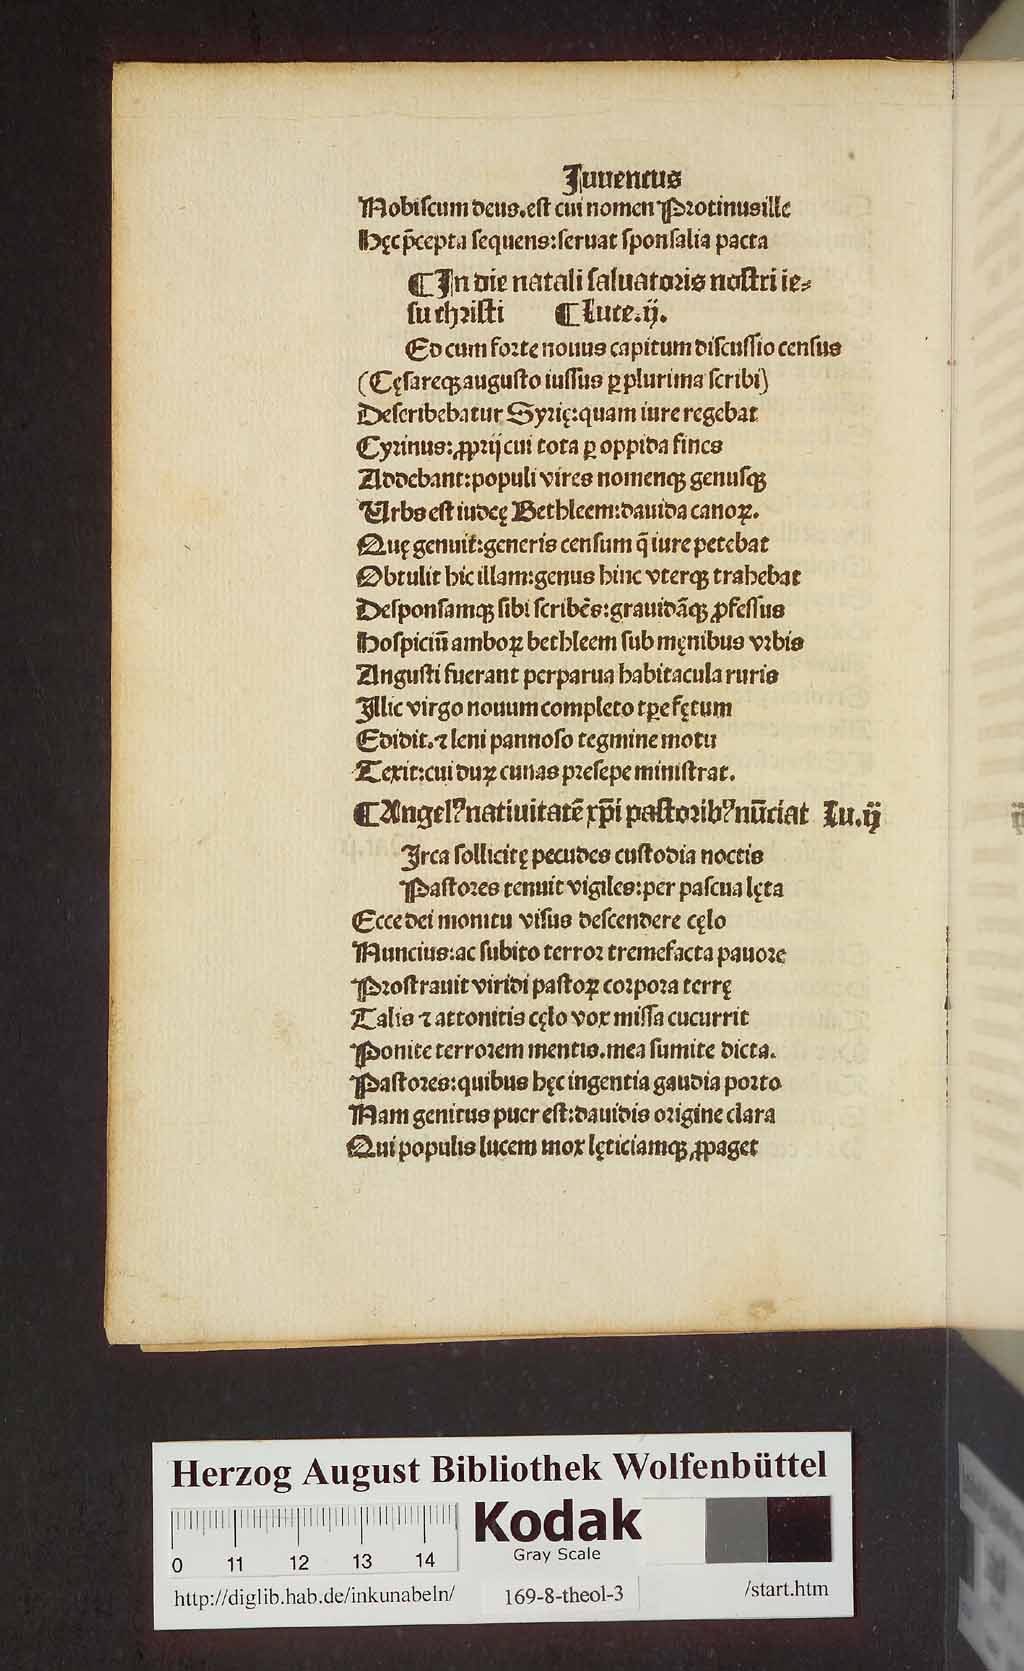 Iuuencus
Nobiſcum deus.eſt cui nomen Protinusille
Hęc p̄cepta ſequens:ſeruat ſponſalia pacta
¶In die natali ſaluatoris noſtri ie⸗
ſu chriſti ¶Luce.ij.
Ed cum forte nouus capitum diſcuſſio cenſus
(Cęſareqꝫ auguſto iuſſus ꝑ plurima ſcribi)
Deſcribebatur Syrię:quam iure regebat
Cyrinus:ꝓprij cui tota ꝑ oppida fines
Addebant:populi vires nomenqꝫ genuſqꝫ
Urbs eſt iudeę Bethleem:dauida canoꝝ.
Quę genuit:generis cenſum q̄ iure petebat
Obtulit hic illam:genus hinc vterqꝫ trahebat
Deſponſamqꝫ ſibi ſcribēs:grauidāqꝫ ꝓfeſſus
Hoſpiciū amboꝝ bethleem ſub męnibus vrbis
Anguſti fuerant perparua habitacula ruris
Illic virgo nouum completo tꝑe fętum
Edidit.⁊ leni pannoſo tegmine motu
Texit:cui duꝝ cunas preſepe miniſtrat.
¶Angelꝰ natiuitatē xp̄i paſtoribꝰ nūciat Lu.ij
Irca ſollicitę pecudes cuſtodia noctis
Paſtores tenuit vigiles:per paſcua lęta
Ecce dei monitu viſus deſcendere cęlo
Nuncius:ac ſubito terror tremefacta pauore
Proſtrauit viridi paſtoꝝ corpora terrę
Talis ⁊ attonitis cęlo vox miſſa cucurrit
Ponite terrorem mentis.mea ſumite dicta.
Paſtores:quibus hęc ingentia gaudia porto
Nam genitus puer eſt:dauidis origine clara
Qui populis lucem mox lęticiamqꝫ ꝓpaget
Herzog August Bibliothek Wolfenbüttel
Kodak
Gray Scale
0 11 12 13 14
http://diglib.hab.de/inkunabeln/ 169-8-theol-3 /start.htm